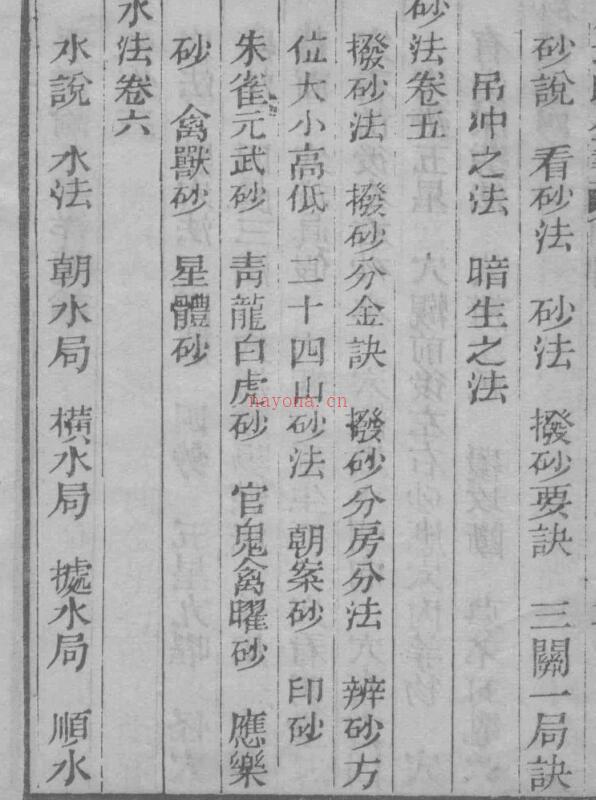 砂說　看砂法　砂法　撥砂要訣　三關一局訣
吊冲之法　暗生之法
砂法卷五
撥砂法　撥砂分金訣　撥砂分房分法　辨砂方
位大小高低　二十四山砂法　朝案砂　印砂
朱雀元武砂　靑龍白虎砂　官鬼禽曜砂　應樂
砂　禽獸砂　星體砂
水法卷六
水說　水法　朝水局　橫水局　據水局　順水
nayona.cn